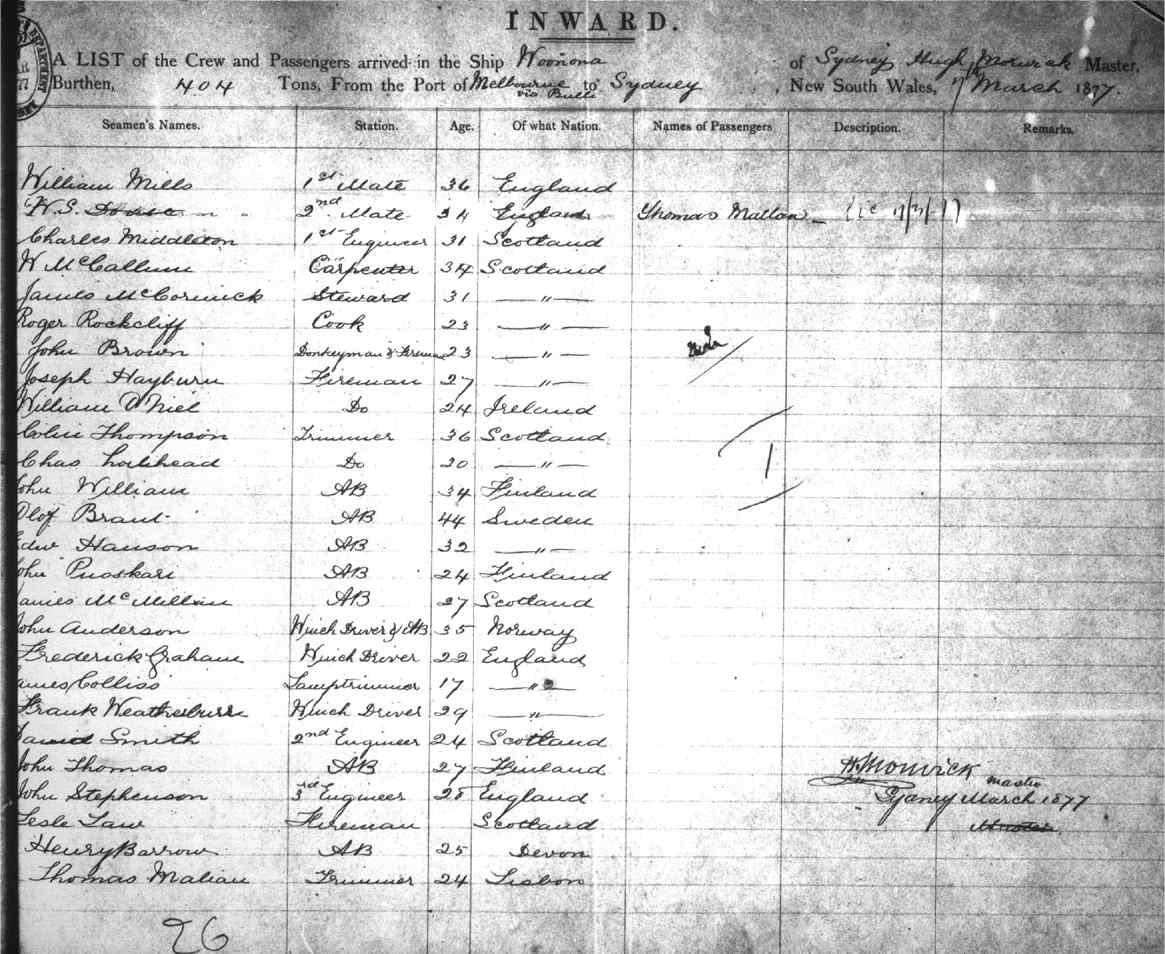 INWARD.
A LIST of the Crew and Passengers arrived in the Ship Woonona of Sydney Hugh Monwick Master,
Burthen, 404 Tons, From the Port of Melbourne via Bulli to Sydney, New South Wales, March 1877.
Seamen's Names. Station. Age. Of what Nation. Names of Passengers Description. Remarks.
William Mills 1st Mate 36 England
W.S. 2nd Mate 34 England Thomas Mallon
Charles Middleton 1st Engineer 31 Scotland
W McCallum Carpenter 34 Scotland
James McCormick Steward 31 — " —
Roger Rockcliff Cook 23 — " —
John Brown Donkeyman & Fireman 23 — " —
Joseph Hayburn Fireman 27 — " —
William O'Niel Do 24 Ireland
Colin Thompson Trimmer 36 Scotland
Chas Do 30 — " —
John William AB 34 Finland
Olof Brant AB 44 Sweden
Edw Hanson AB 32 — " —
John Puaskari AB 24 Finland
James McMillan AB 27 Scotland
John Anderson Winch Driver & AB 35 Norway
Frederick Graham Winch Driver 22 England
James Colliss Lamptrimmer 17 — " —
Frank Weatherburn Winch Driver 29 — " —
David Smith 2nd Engineer 24 Scotland
John Thomas AB 27 Finland
H Monwick master
John Stephenson 3rd Engineer 28 England
Sydney March 1877
Lesle Law Fireman Scotland
Henry Barrow AB 25 Devon
Thomas Malian Trimmer 24 Lisbon
26